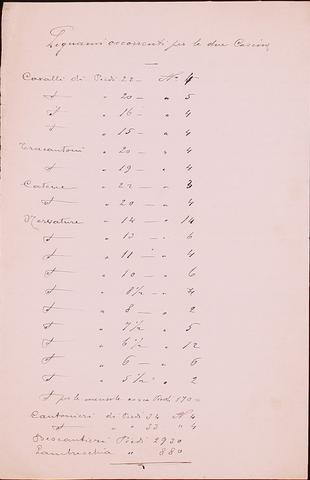 Legnami occorrenti per le due Cascine
Cavalli di Piedi 22 — N° 4
" 20 — " 5
" 16 — " 4
" 15 — " 4
Tracantoni " 20 — " 4
" 19 — " 4
Catene " 22 — " 3
" 20 — " 4
Nervature " 14 — " 14
" 13 — " 6
" 11 — " 4
" 10 — " 6
" 8½ — " 4
" 8 — " 2
" 7½ " 5
" 6½ " 12
" 6 — " 6
" 5½ " 2
per le mensole Piedi 170
Cantonieri di Piedi 34 N° 4
" 33 " 4
Piedi 2930
Lambrecchia " 880